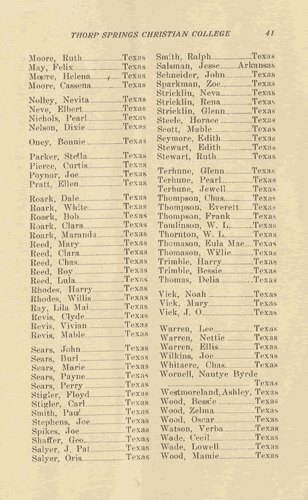 THORP SPRINGS CHRISTIAN COLLEGE 41
Moore, Ruth Texas
May, Felix Texas
Moore, Helena Texas
Moore, Cassena Texas
Nolley, Nevita Texas
Neve, Elbert Texas
Nichols, Pearl Texas
Nelson, Dixie Texas
Oney, Bonnie Texas
Parker, Stella Texas
Pierce, Curtis Texas
Poynor, Joe Texas
Pratt, Ellen Texas
Roark, Dale Texas
Roark, White Texas
Roark, Bob Texas
Roark, Clara Texas
Roark, Maranda Texas
Reed, Mary Texas
Reed, Clara Texas
Reed, Chas. Texas
Reed, Roy Texas
Reed, Lula Texas
Rhodes, Harry Texas
Rhodes, Willis Texas
Ray, Lila Mai Texas
Revis, Clyde Texas
Revis, Vivian Texas
Revis, Mable Texas
Sears, John Texas
Sears, Burl Texas
Sears, Marie Texas
Sears, Payne Texas
Sears, Perry Texas
Stigler, Floyd Texas
Stigler, Carl Texas
Smith, Paul Texas
Stephens, Joe Texas
Spikes, Joe Texas
Shaffer, Geo. Texas
Salyer, J. Pat Texas
Salyer, Oris Texas
Smith, Ralph Texas
Salsman, Jesse Arkansas
Schneider, John Texas
Sparkman, Zoe Texas
Stricklin, Neva Texas
Stricklin, Rena Texas
Stricklin, Glenn Texas
Steele, Horace Texas
Scott, Mable Texas
Seymore, Edith Texas
Stewart, Edith Texas
Stewart, Ruth Texas
Terhune, Glenn Texas
Terhune, Pearl Texas
Terhune, Jewell Texas
Thompson, Chas. Texas
Thompson, Everett Texas
Thompson, Frank Texas
Tomlinson, W. L. Texas
Thornton, W. L. Texas
Thomason, Eula Mae Texas
Thomason, Willie Texas
Trimble, Harry Texas
Trimble, Bessie Texas
Thomas, Delia Texas
Vick, Noah Texas
Vick, Mary Texas
Vick, J. O. Texas
Warren, Lee Texas
Warren, Nettie Texas
Warren, Ellis Texas
Wilkins, Joe Texas
Whitacre, Chas. Texas
Wornell, Nantye Byrde
Texas
Westmoreland, Ashley, Texas
Wood, Bessie Texas
Wood, Zelma Texas
Wood, Oscar Texas
Watson, Verba Texas
Wade, Cecil Texas
Wade, Lowell Texas
Wood, Mamie Texas